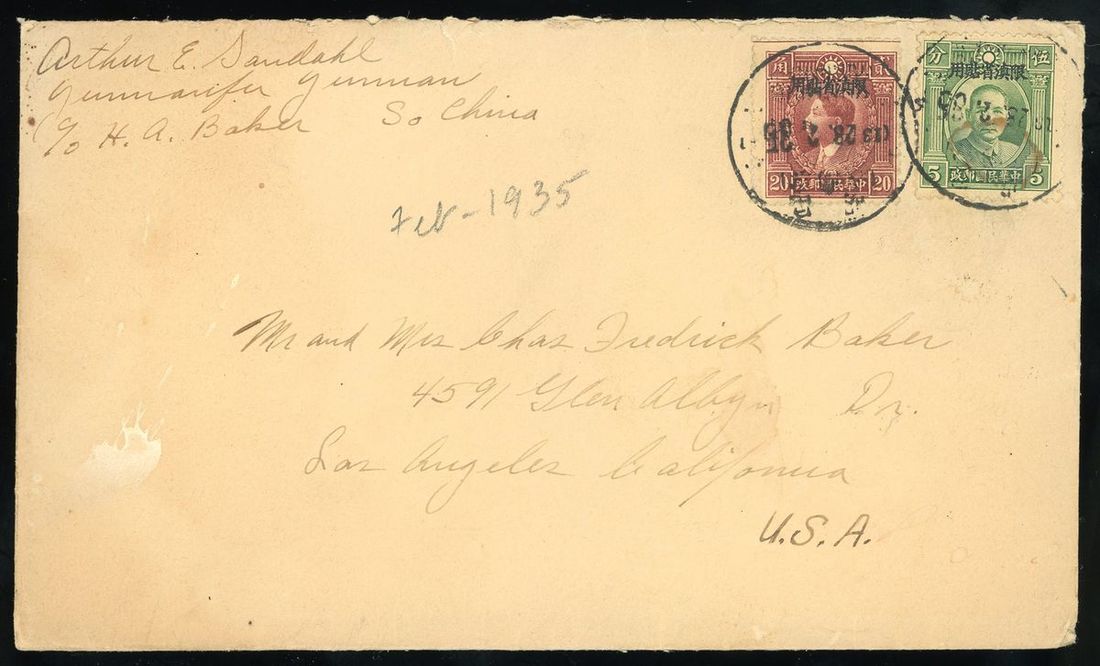 Arthur E. Sandahl
Yunnanfu Yunnan
c/o H. A. Baker So China
Feb - 1935
Mr and Mrs Chas Fredrick Baker
4591 Glen Albyn Dr.
Los Angeles California
U.S.A.
角 貳
用貼省滇限
20 政郵國民華中 20
28. 2. 35
分 伍
用貼省滇限
5 政郵國民華中 5